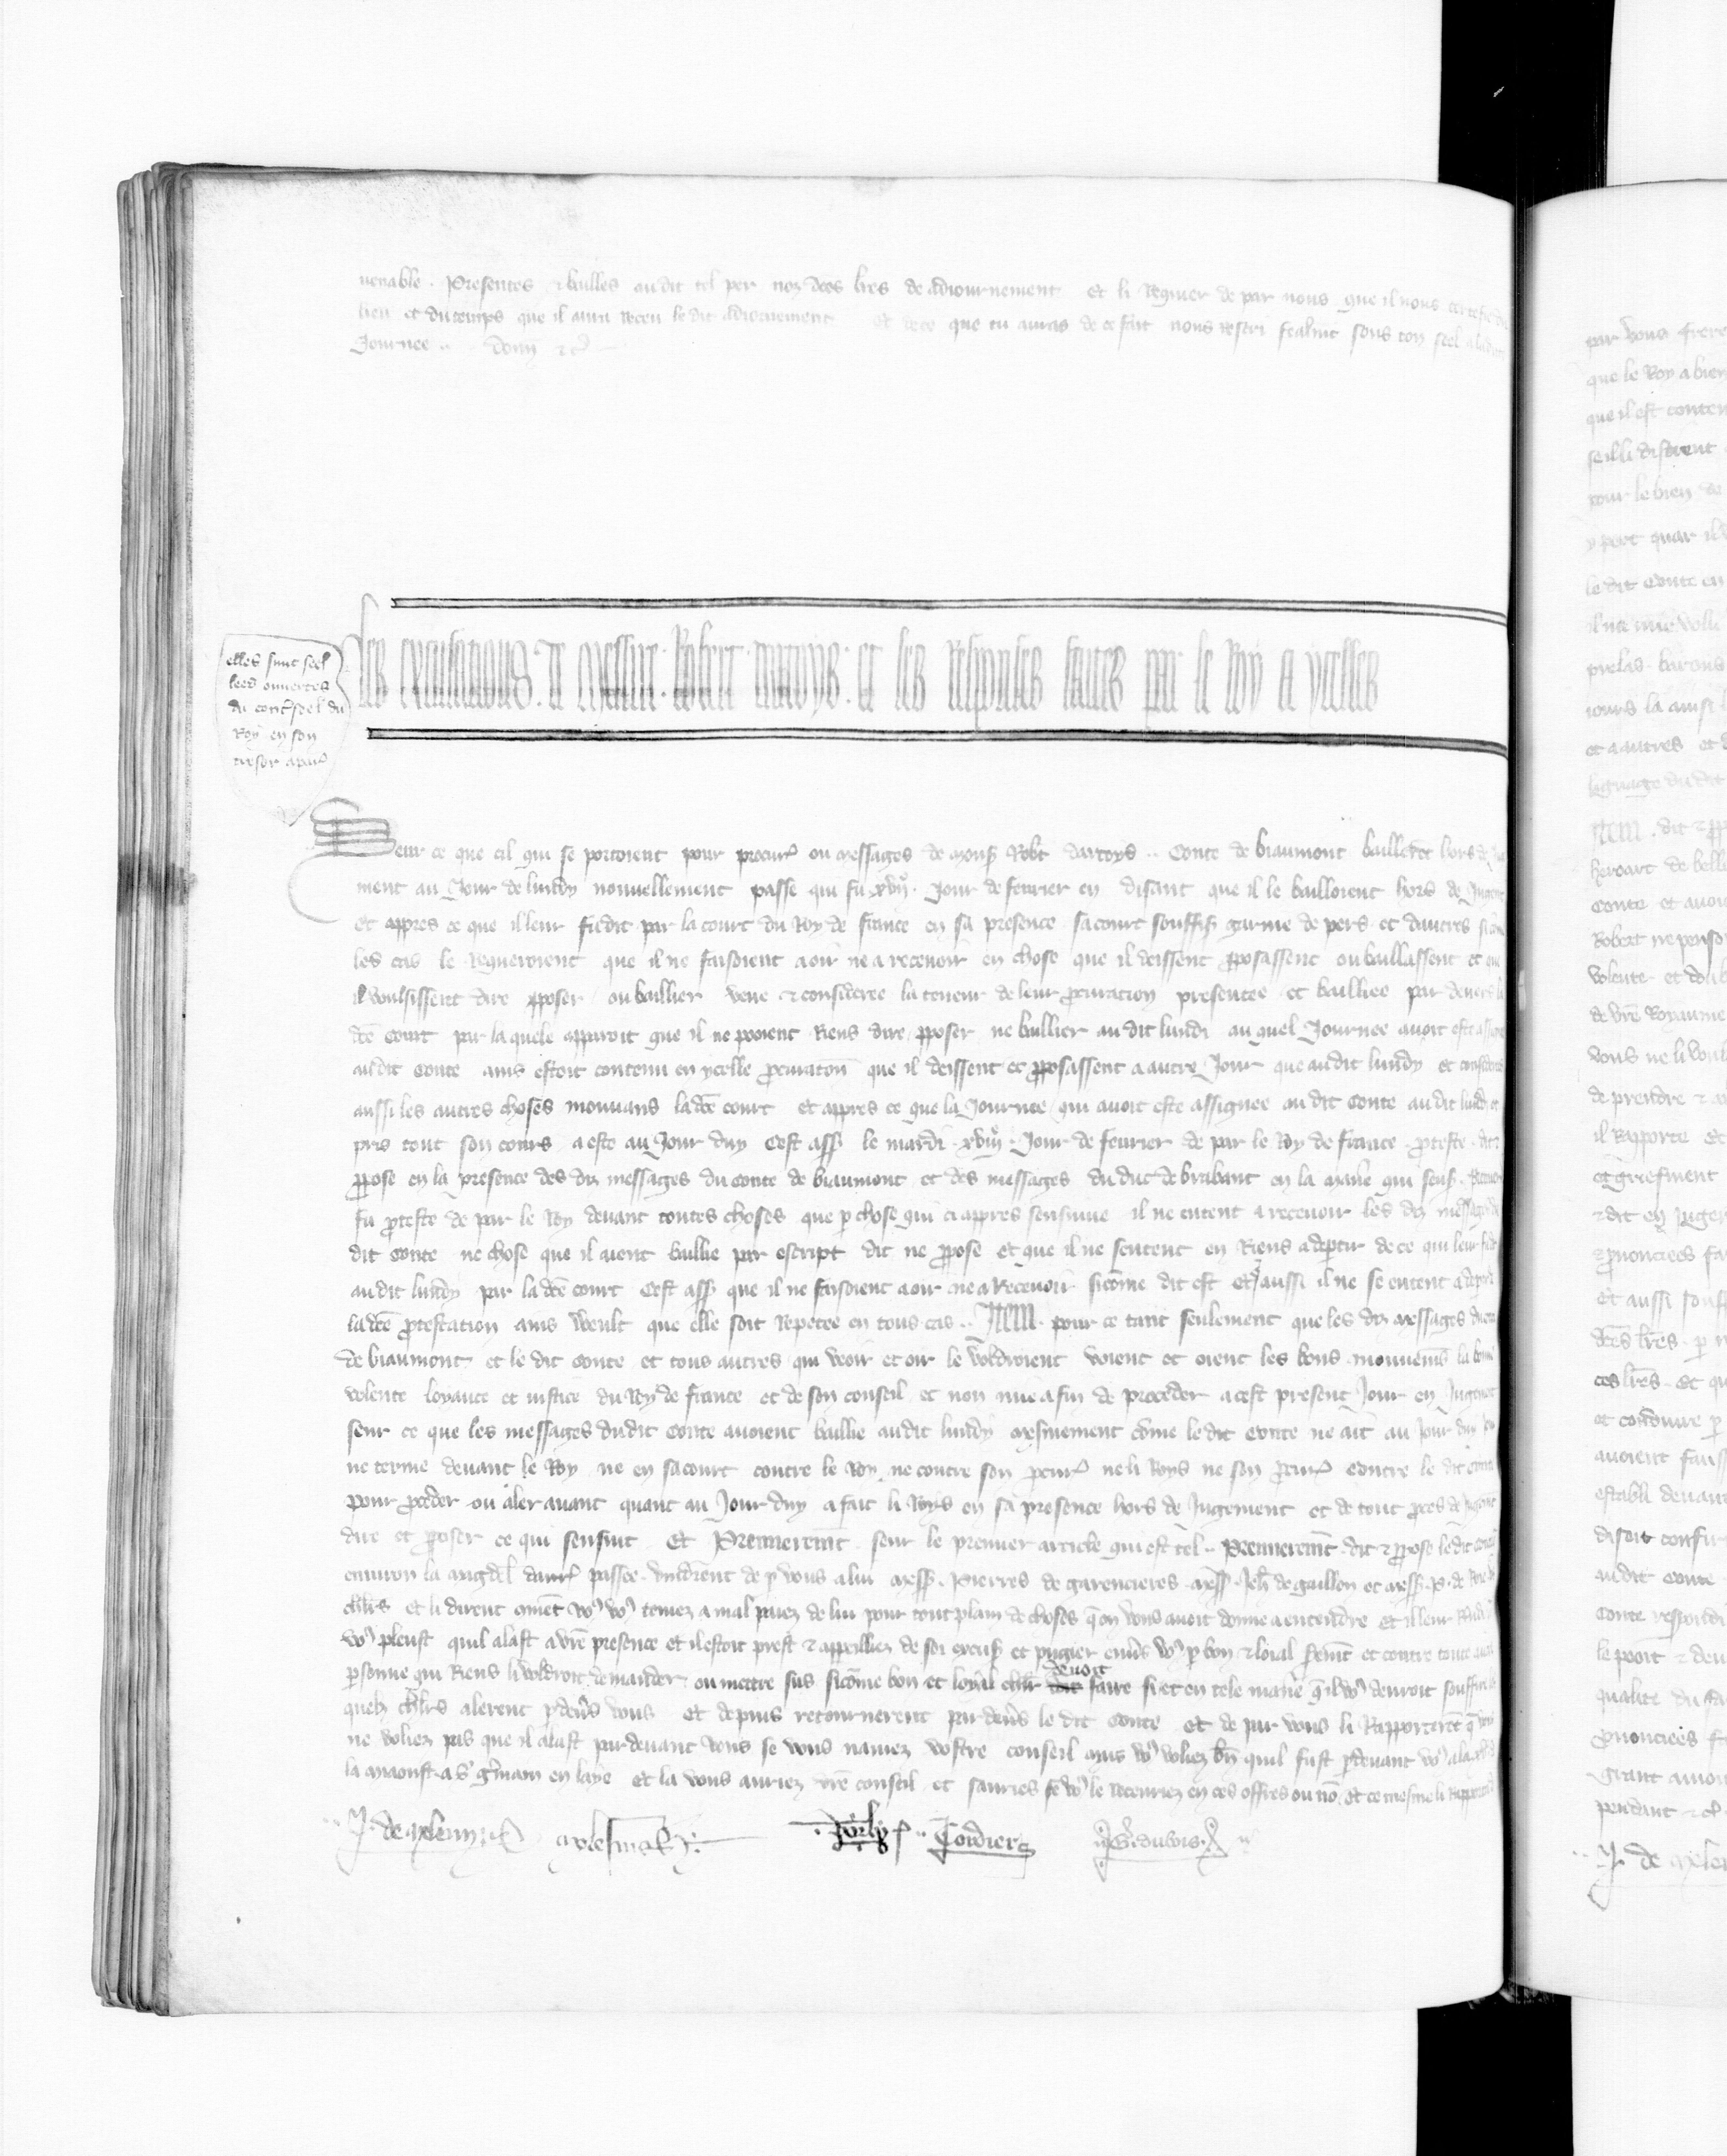 nenable. Presentes & bailles au dit tel per noz dctes lres de adiournement et li requier de par nous que il nous certefie du
lieu et du temps que il aura receu le dit adiournement et de ce que tu auras de ce fait nous rescri fealmt souz ton seel a la dite
Journee .. Donn &c
elles sunt seel
lees ouuertes
du contreseel du
Roy en son
tresor a par
Les excusacions. de messire. Robert. dartoys. et les responses faites par le Roy a ycelles
Seur ce que cil qui se portoient pour procur ou messages de mons Robt dartoys .. Conte de biaumont baillerent hors de
ment au Jour de lundy nouuellement passe qui fu xvij. Jour de feurier en disant que il le bailloient hors de Jugemt
et appres ce que il leur fu dit par la court du Roy de france en sa presence sa court souffis garnie de pers et dautres si com
les cas le requeroient que il ne faisoient a oir ne a receuoir en chose que il deissent pposassent ou baillassent et que
il voulsissent dire pposer ou baillier veue & consideree la teneur de leur procuration presentee et bailliee par deuers la
dcte Court par la quele apparoit que il ne pooient riens dire pposer ne baillier au dit lundi au quel Journee auoit este assignee
au dit Conte ains estoit contenu en ycelle procuracon que il deissent et pposassent a autre Jour que au dit lundy et considerees
aussi les autres choses mouuans la dcte court et appres ce que la Journee qui auoit este assignee au dit Conte au dit lundi ot
pris tout son cours a este au Jour duy Cest ass le mardi xviij. Jour de feurier de par le Roy de france proteste. dit &
ppose en la presence des diz messages du conte de biaumont et des messages du duc de brabant en la manie qui sens.
fu proteste de par le Roy deuant toutes choses que p chose qui ci appres sensuiue il ne entent a receuoir les diz messages du
dit Conte ne chose que il aient baillie par escript dit ne ppose et que il ne sentent en riens a deptir de ce qui leur fu dit
au dit lundy par la dcte court Cest ass que il ne faisoient a oir ne a receuoir sicome dit est Et aussi il ne se entent a deptir
la dcte protestation ains veult que elle soit repetee en tous cas .. Item. pour ce tant seulement que les diz messages du conte
de biaumont et le dit Conte et tous autres qui veoir et oir le voldroient voient et oient les bons mouuemens la bonne
volente loyaute et iustice du Roy de france et de son conseil et non mie a fin de proceder a cest present Jour en Jugemt
seur ce que les messages du dit Conte auoient baillie au dit lundy mesmement come le dit Conte ne ait au Jour duy
ne terme deuant le Roy ne en sa court contre le Roy ne contre son procur ne li Roys ne son procur contre le dit conte
pour proceder ou aler auant quant au Jour duy a fait li Roys en sa presence hors de Jugement et de tout proces de Jugemt
dire et pposer ce qui sensuit Et Premieremt seur le premier article qui est tel .. Premieremt dit & ppose le dit conte
enuiron la magdel passee vindrent de p vous a lui mess. Pierres de garencieres mess. Jeh de gaillon et mess. P. de
chlrs et li dirent coment vos vos teniez a mal paiez de lui pour tout plain de choses que on vous auoit donne a entendre et il leur
vos pleust quil alast a vre presence et il estoit prest & appeilliez de soi excus et purgier enuers vos p bon & loial serment et contre toute autre
psonne qui riens li voldroit demander ou mettre sus sicome bon et loyal chlr deuoit faire si et en tele manie quil vos deuroit souffire
quelz chlrs alerent pdeuers vous et depuis retournerent par deuers le dit Conte et de par vous li rapporterent que vous
ne voliez pas que il alast par deuant vous se vous nauiez vostre conseil mais vos voliez bn quil fust pdeuant vos a la
la maoust a s germain en laye et la vous auriez vre conseil et sauries se vos le receuriez en ces offres ou no et ce mesme li rapporta
Cordier
par vous frere
que le Roy a bien
que il est conten
se il li distrent
pour le bien de
le dit Conte en
prelas barons
iours la ainsi
et a autres et
lignage du dit
Item. dit & pp
heroart de bell
Conte et auoi
Robert ne penso
volente et doub
de vre Royaume
vous ne li voul
de prendre & a
il rapporte Et
et griefment
& dit en Juge
& prononciees fa
Et aussi sons
dctes lres. p
ces lres. Et qu
et conduire p
auoient fauss
establi deuant
disoit consir
au dit Conte
Conte respondi
le pooit & deu
qualite du fa
prononciees f
grant amou
pendant &
J. de